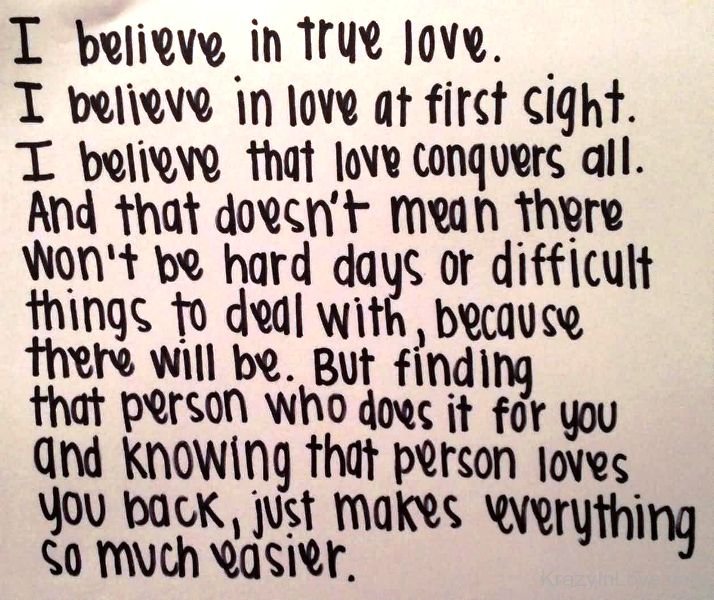 I believe in true love.
I believe in love at first sight.
I believe that love conquers all.
And that doesn't mean there
won't be hard days or difficult
things to deal with, because
there will be. But finding
that person who does it for you
and knowing that person loves
you back, just makes everything
so much easier.